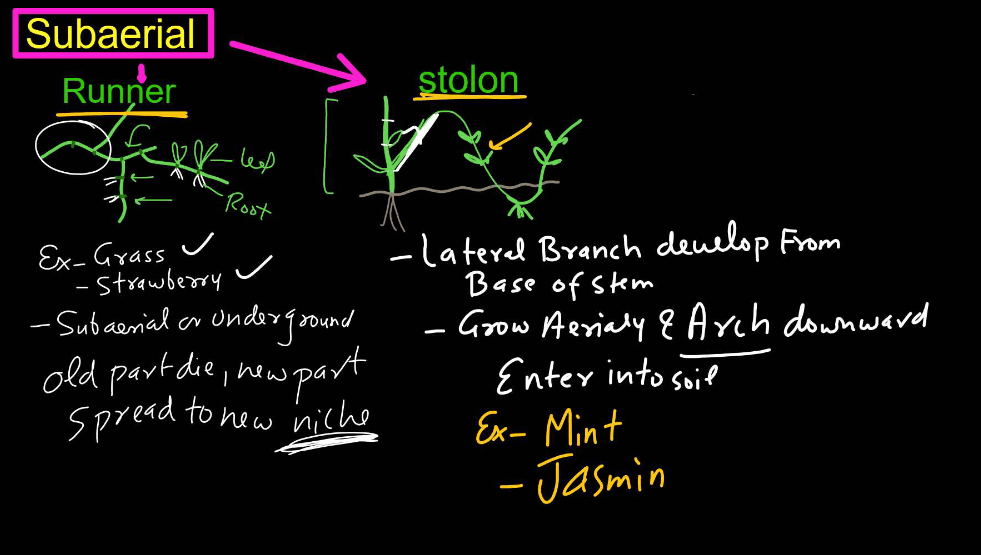 Subaerial
Runner
Leaf
Root
Ex- Grass
- Strawberry
- Subaerial or underground
old part die, new part
spread to new niche
stolon
- Lateral Branch develop From
Base of stem
- Grow Aerialy & Arch downward
Enter into soil
Ex- Mint
- Jasmin